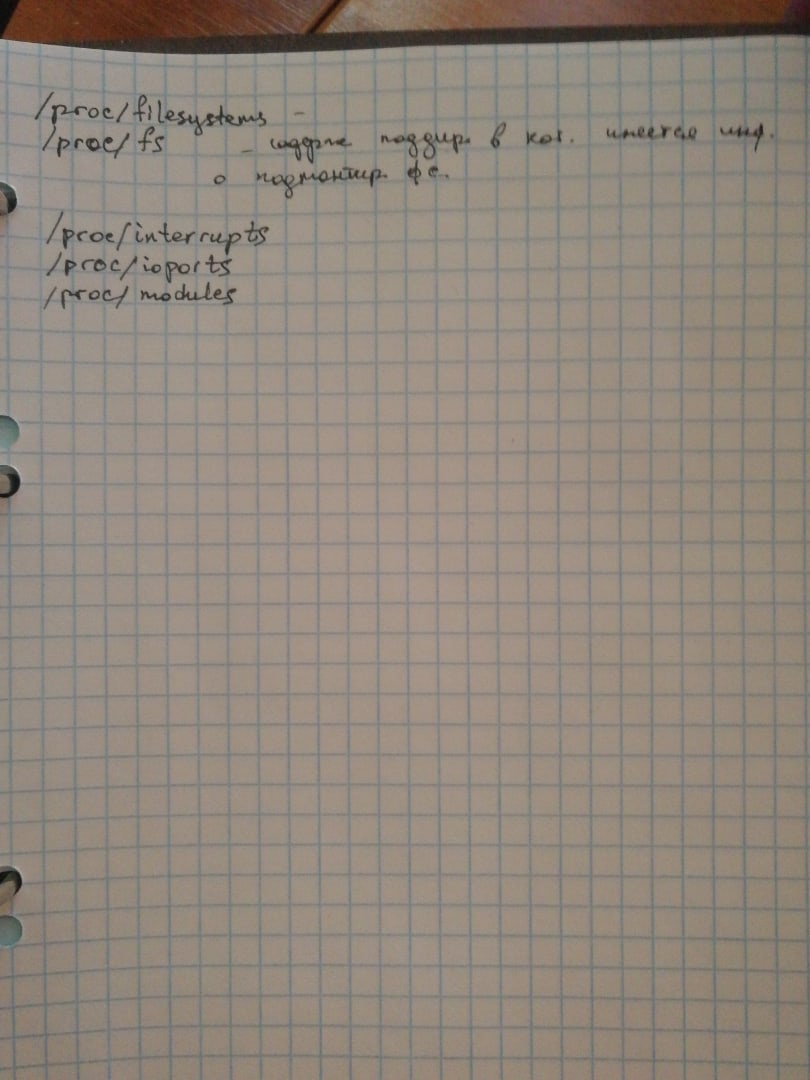 /proc/filesystems -
/proc/fs - содерж поддир. в кот. имеется инф.
о подмонтир. фс.
/proc/interrupts
/proc/ioports
/proc/modules